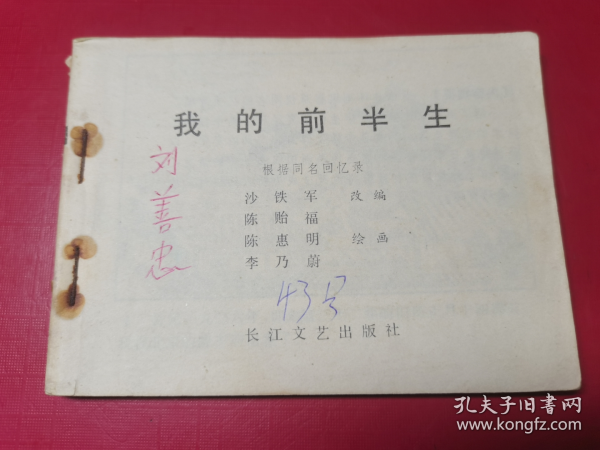 我的前半生
刘善忠
根据同名回忆录
沙铁军 改编
陈贻福
陈惠明 绘画
李乃蔚
43号
长江文艺出版社
孔夫子旧书网
www.kongfz.com